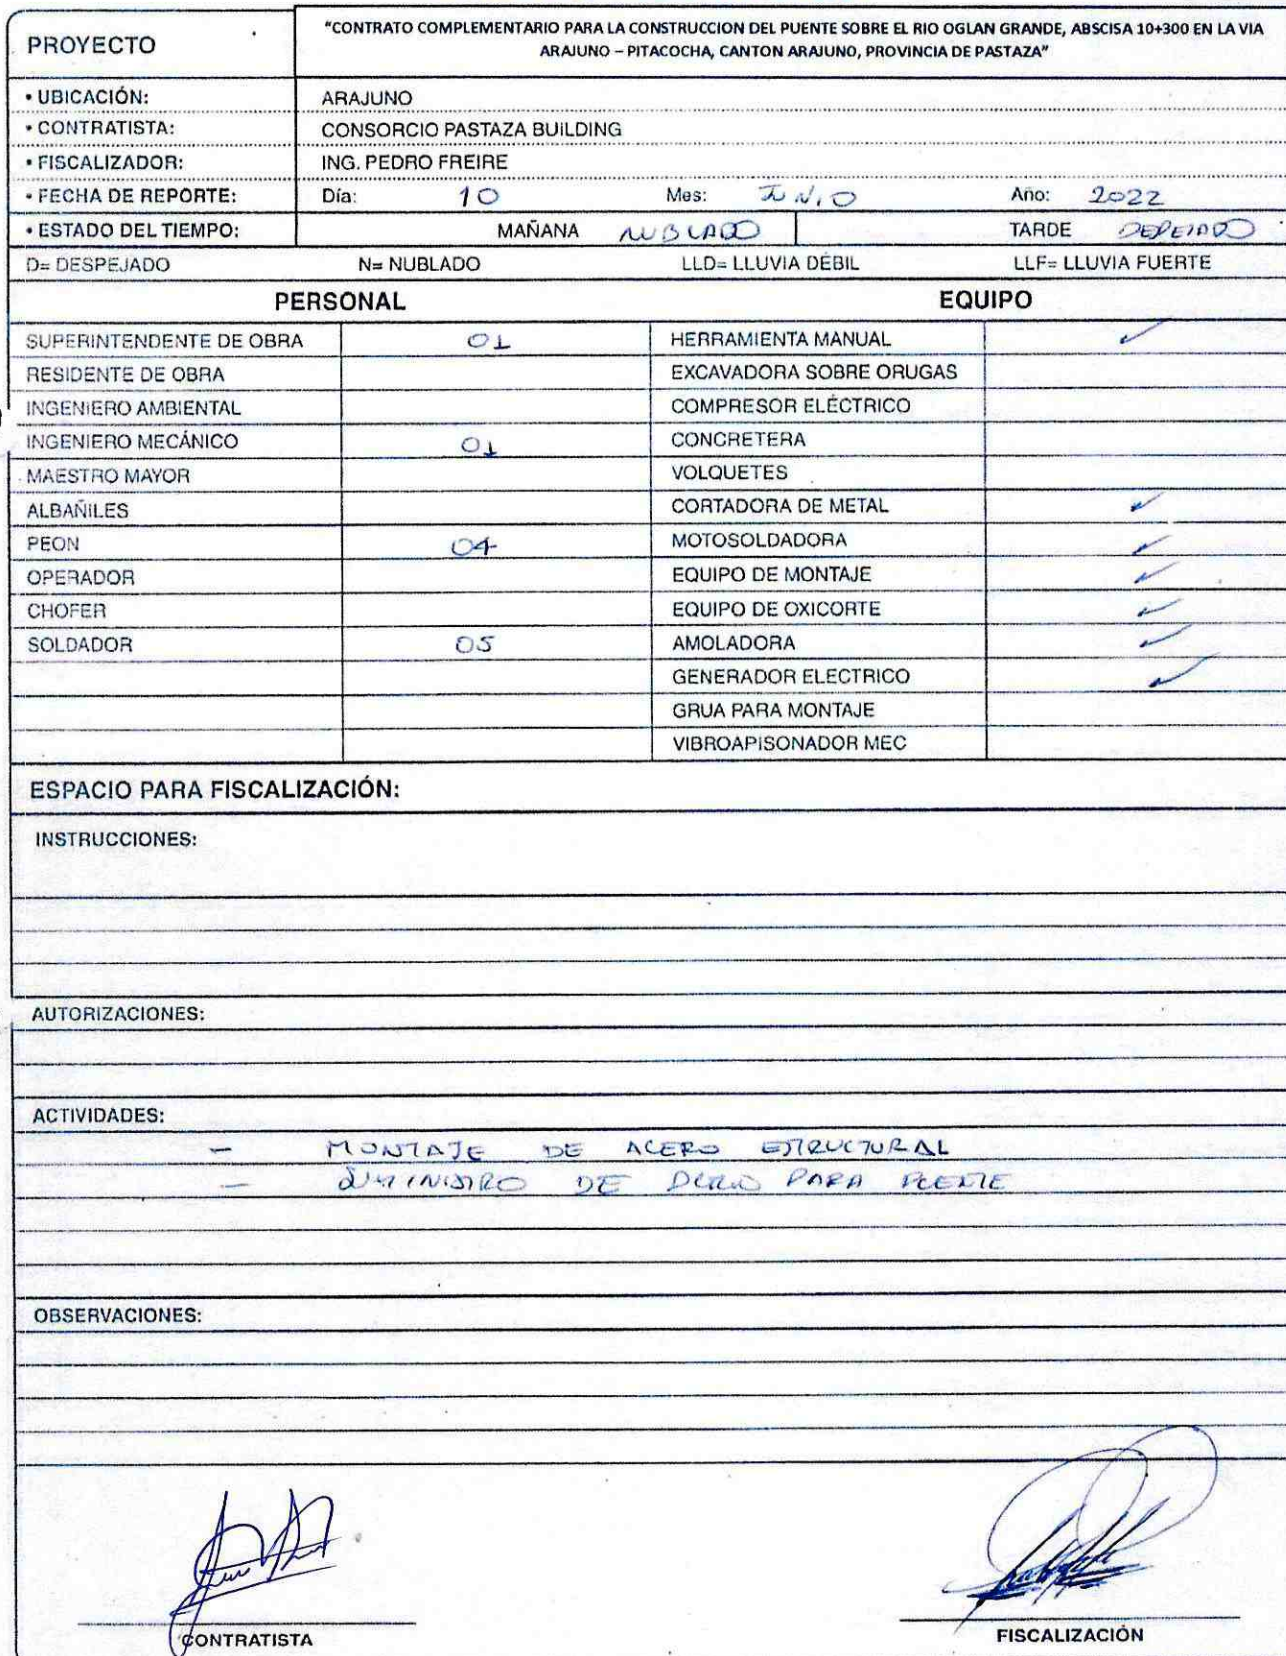 PROYECTO
"CONTRATO COMPLEMENTARIO PARA LA CONSTRUCCION DEL PUENTE SOBRE EL RIO OGLAN GRANDE, ABSCISA 10+300 EN LA VIA
ARAJUNO – PITACOCHA, CANTON ARAJUNO, PROVINCIA DE PASTAZA"
• UBICACIÓN: ARAJUNO
• CONTRATISTA: CONSORCIO PASTAZA BUILDING
• FISCALIZADOR: ING. PEDRO FREIRE
• FECHA DE REPORTE: Día: 10 Mes: JUNIO Año: 2022
• ESTADO DEL TIEMPO: MAÑANA NUBLADO TARDE DEPEJADO
D= DESPEJADO N= NUBLADO LLD= LLUVIA DÉBIL LLF= LLUVIA FUERTE
PERSONAL EQUIPO
SUPERINTENDENTE DE OBRA 01 HERRAMIENTA MANUAL ✓
RESIDENTE DE OBRA EXCAVADORA SOBRE ORUGAS
INGENIERO AMBIENTAL COMPRESOR ELÉCTRICO
INGENIERO MECÁNICO 01 CONCRETERA
MAESTRO MAYOR VOLQUETES
ALBAÑILES CORTADORA DE METAL ✓
PEON 04 MOTOSOLDADORA ✓
OPERADOR EQUIPO DE MONTAJE ✓
CHOFER EQUIPO DE OXICORTE ✓
SOLDADOR 05 AMOLADORA ✓
GENERADOR ELECTRICO ✓
GRUA PARA MONTAJE
VIBROAPISONADOR MEC
ESPACIO PARA FISCALIZACIÓN:
INSTRUCCIONES:
AUTORIZACIONES:
ACTIVIDADES:
- MONTAJE DE ACERO ESTRUCTURAL
- SUMINISTRO DE PARA PUENTE
OBSERVACIONES:
CONTRATISTA FISCALIZACIÓN